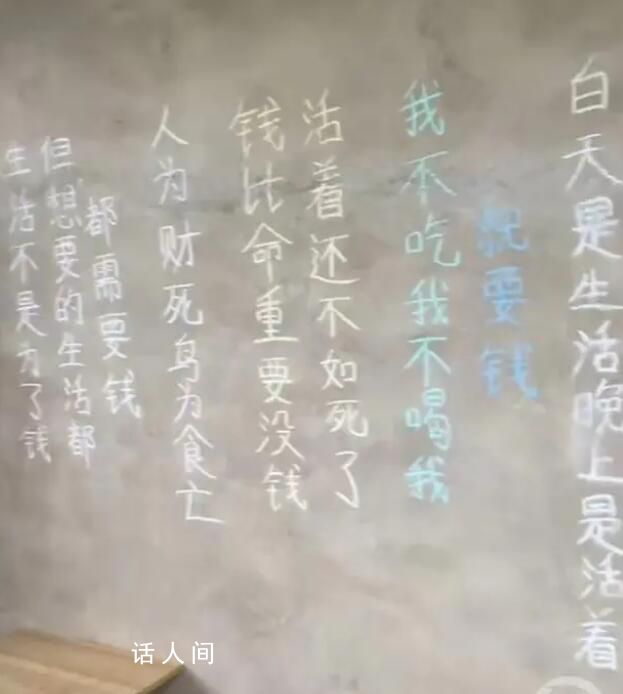 生活不是为了钱
但想要的生活都
都需要钱
人为财死鸟为食亡
钱比命重要没钱
活着还不如死了
我不吃我不喝我
就要钱
白天是生活晚上是活着
话人间